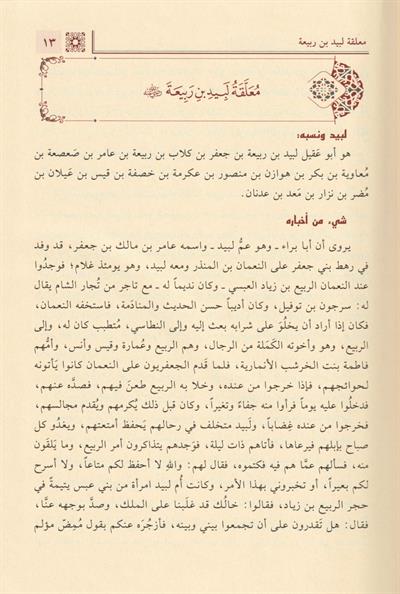 معلقة لبيد بن ربيعة
١٣
مُعَلَّقَةُ لَبِيدِ بنِ رَبِيعَةَ
لبيد ونسبه:
هو أبو عَقيل لبيد بن ربيعة بن جعفر بن كلاب بن ربيعة بن عامر بن صَعصعة بن
مُعاوية بن بكر بن هوازن بن منصور بن عكرمة بن خصفة بن قيس بن غَيلان بن
مُضر بن نزار بن مَعد بن عدنان.
شيء من أخباره
يروى أن أبا براء ـ وهو عمُّ لبيد ـ واسمه عامر بن مالك بن جعفر، قد وفد
في رهط بني جعفر على النعمان بن المنذر ومعه لبيد، وهو يومئذ غلام؛ فوجدُوا
عند النعمان الربيع بن زياد العبسي ـ وكان نديماً له ـ مع تاجر من تُجار الشام يقال
له: سرجون بن توفيل، وكان أديباً حسن الحديث والمنادَمة، فاستخفه النعمان،
فكان إذا أراد أن يخلُوَ على شرابه بعث إليه وإلى النطاسي، مُتطبب كان له، وإلى
الربيع، وهو وأخوته الكَمَلة من الرجال، وهم الربيع وعُمارة وقيس وأنس، وأمُّهم
فاطمة بنت الخرشب الأنمارية، فلما قَدم الجعفريون على النعمان كانوا يَأتونه
لحوائجهم، فإذا خرجوا من عنده، وخلا به الربيع طعنَ فيهم، فصدَّه عنهم،
فدخلُوا عليه يوماً فرأوا منه جفاءً وتغيراً، وكان قبل ذلك يُكرمهم ويُقدم مجالسهم،
فخرجوا من عنده غِضاباً، ولَبيد متخلف في رحالهم يَحفظ أمتعتهم، ويغدُو كل
صباح بإبلهم فيرعاها، فأتاهم ذات ليلة، فوَجدهم يتذاكرون أمر الربيع، وما يَلقون
منه، فسألهم عمَّا هم فيه فكتموه، فقال لهم: واللهِ لا أحفظ لكم متاعاً، ولا أسرح
لكم بعيراً، أو تخبروني بهذا الأمر، وكانت أُم لبيد امرأة من بني عبس يتيمةً في
حجر الربيع بن زياد، فقالوا: خالُك قد غلَبنا على الملك، وصدَّ بوجهه عنَّا،
فقال: هل تَقدرون على أن تجمعوا بيني وبينه، فأزجُرَه عنكم بقول مُمِضّ مؤلم